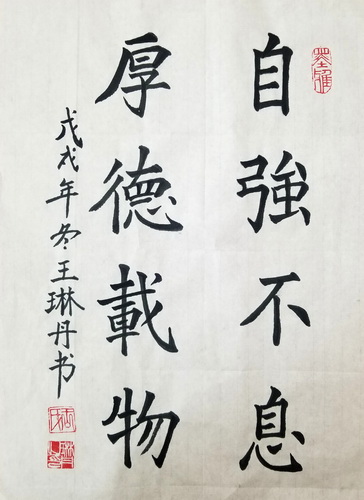 自強不息
厚德載物
戊戌年冬王琳丹书